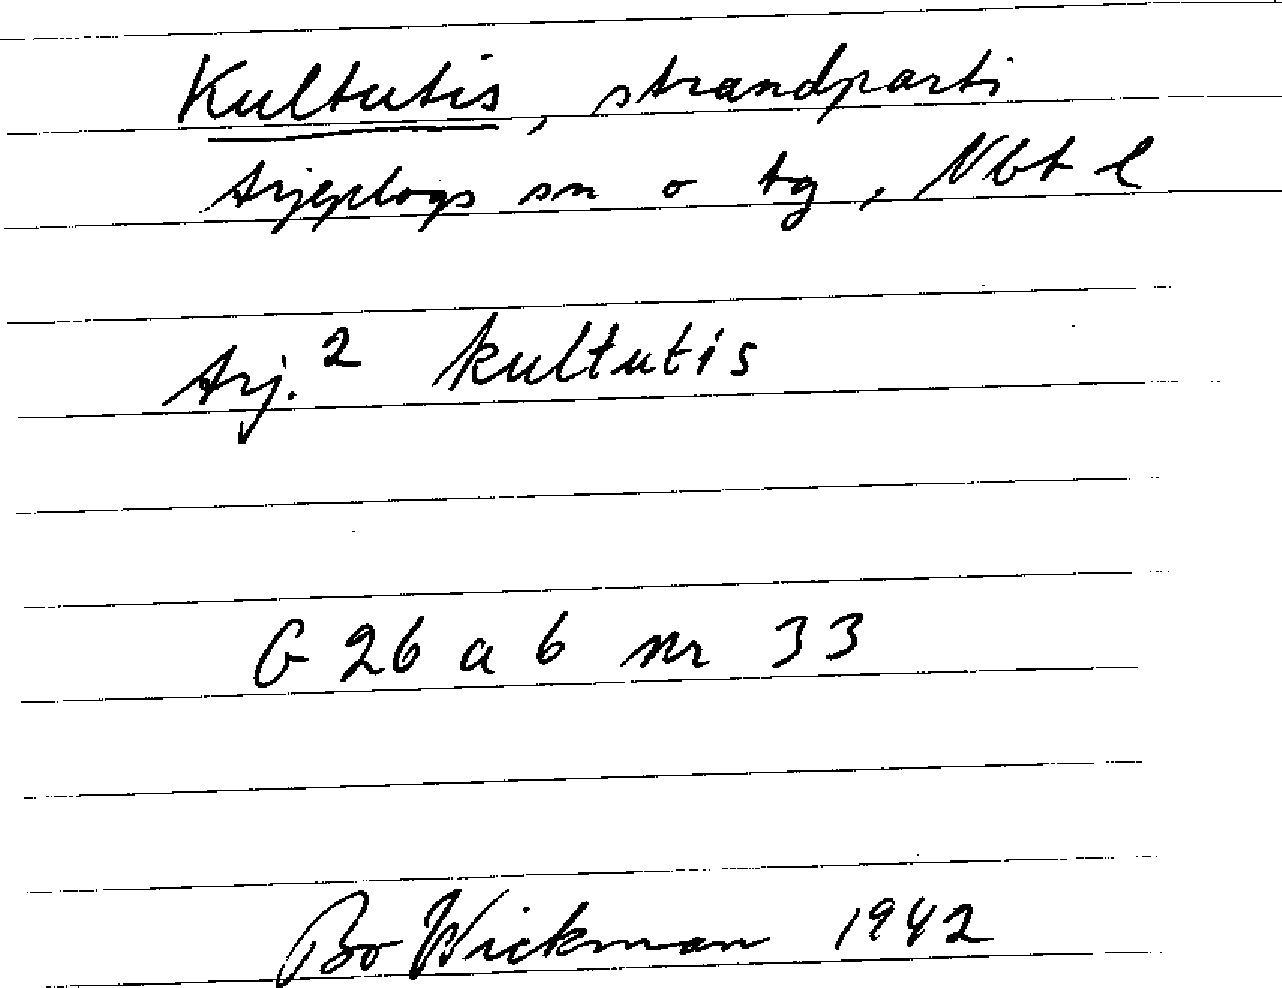 Kultutis, strandparti
Arjeplogs sn o tg, Nbt l
Arj.² kultutis
G 26 a 6 nr 33
Bo Wickman 1942